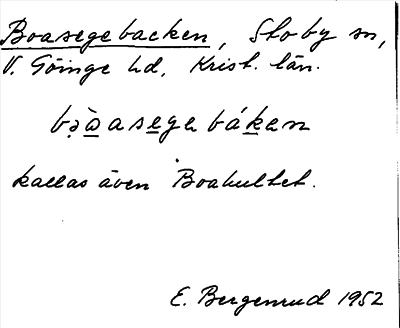 Boasegebacken, Stoby sn,
V. Göinge hd, Krist. län.
bòasege báken
kallas även Boahultet.
E. Bergenrud 1952